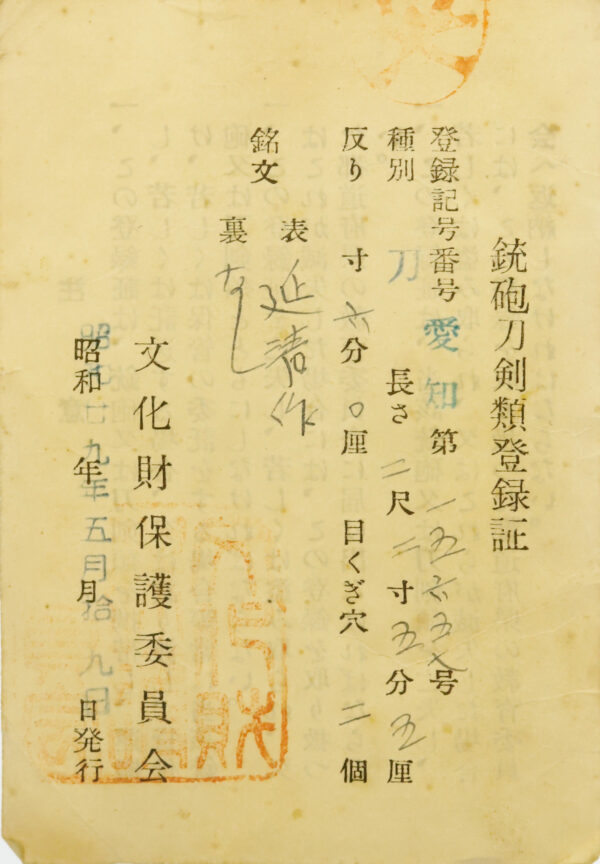 銃砲刀剣類登録証
登録記号番号 愛知 第一五六五八号
種別 刀 長さ 二尺二寸五分五厘
反り 寸六分〇厘 目くぎ穴 二個
銘文 表 延清作
裏 なし
文化財保護委員会
昭和 年 月 日発行
昭和廿九年五月拾九日